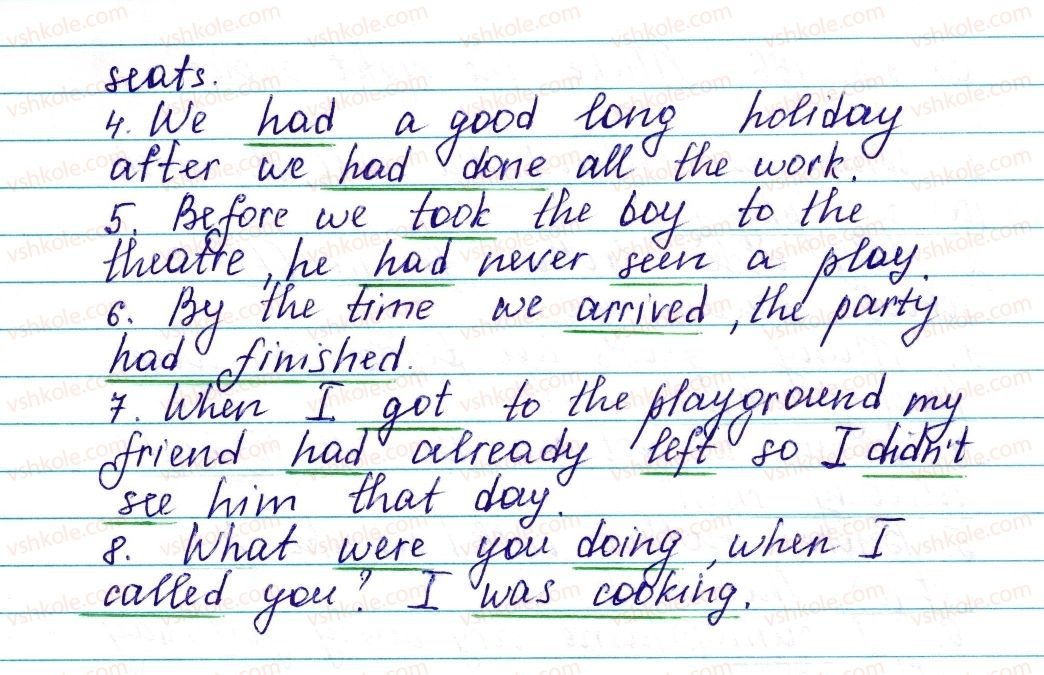 seats.
4. We had a good long holiday
after we had done all the work.
5. Before we took the boy to the
theatre, he had never seen a play.
6. By the time we arrived, the party
had finished.
7. When I got to the playground my
friend had already left so I didn't
see him that day.
8. What were you doing, when I
called you? I was cooking.